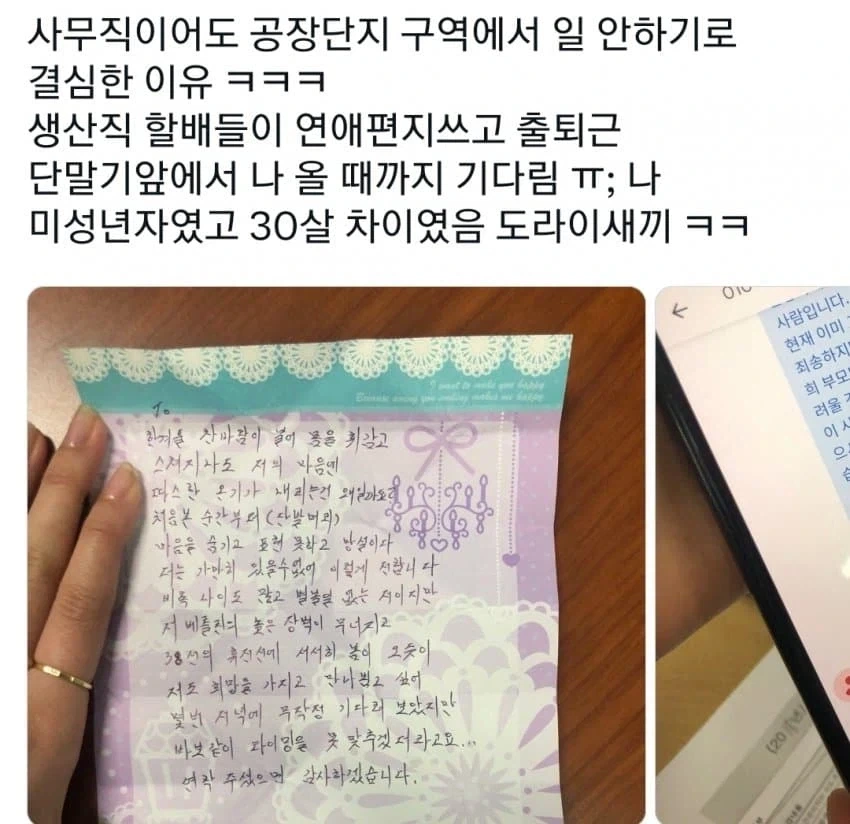 사무직이어도 공장단지 구역에서 일 안하기로
결심한 이유 ㅋㅋㅋ
생산직 할배들이 연애편지쓰고 출퇴근
단말기앞에서 나 올 때까지 기다림 ㅠ; 나
미성년자였고 30살 차이였음 도라이새끼 ㅋㅋ
I want to make you happy
Because seeing you smiling makes me happy
To
한겨울 찬바람이 불어 몸을 휘감고
스쳐지나도 저의 마음엔
따스한 온기가 내리는건 왜일까요?
처음본 순간부터 (단발머리)
마음을 숨기고 표현 못하고 망설이다
더는 가만히 있을수없어 이렇게 전합니다
비록 나이도 많고 별볼일 없는 저이지만
저 베를린의 높은 장벽이 무너지고
38선의 휴전선에 서서히 봄이 오듯이
저도 희망을 가지고 만나뵙고 싶어
몇번 저녁에 무작정 기다려 보았지만
바보같이 타이밍을 못 맞추겠더라고요...
연락 주셨으면 감사하겠습니다.
사람입니다.
현재 이미
죄송하지
희 부모
려울
이 사
으
습
(20 년